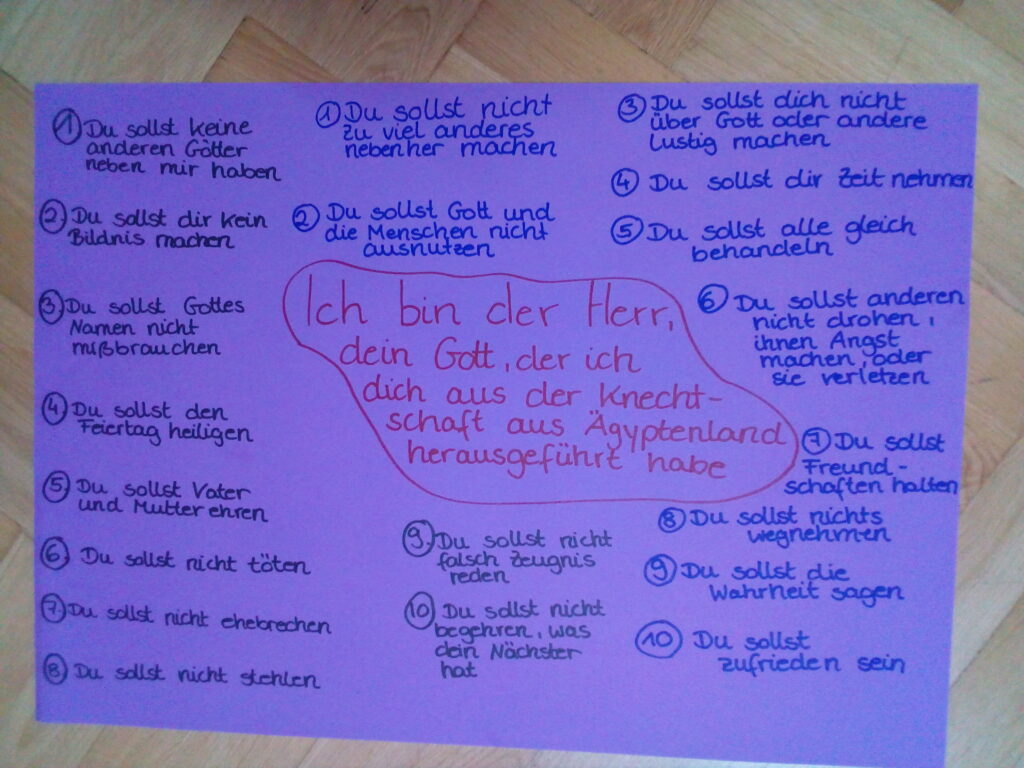 ① Du sollst keine
anderen Götter
neben mir haben
② Du sollst dir kein
Bildnis machen
③ Du sollst Gottes
Namen nicht
mißbrauchen
④ Du sollst den
Feiertag heiligen
⑤ Du sollst Vater
und Mutter ehren
⑥ Du sollst nicht töten
⑦ Du sollst nicht ehebrechen
⑧ Du sollst nicht stehlen
⑨ Du sollst nicht
falsch Zeugnis
reden
⑩ Du sollst nicht
begehren, was
dein Nächster
hat
Ich bin der Herr,
dein Gott, der ich
dich aus der Knecht-
schaft aus Ägyptenland
herausgeführt habe
① Du sollst nicht
zu viel anderes
nebenher machen
② Du sollst Gott und
die Menschen nicht
ausnutzen
③ Du sollst dich nicht
über Gott oder andere
lustig machen
④ Du sollst dir Zeit nehmen
⑤ Du sollst alle gleich
behandeln
⑥ Du sollst anderen
nicht drohen,
ihnen Angst
machen, oder
sie verletzen
⑦ Du sollst
Freund-
schaften halten
⑧ Du sollst nichts
wegnehmen
⑨ Du sollst die
Wahrheit sagen
⑩ Du sollst
zufrieden sein